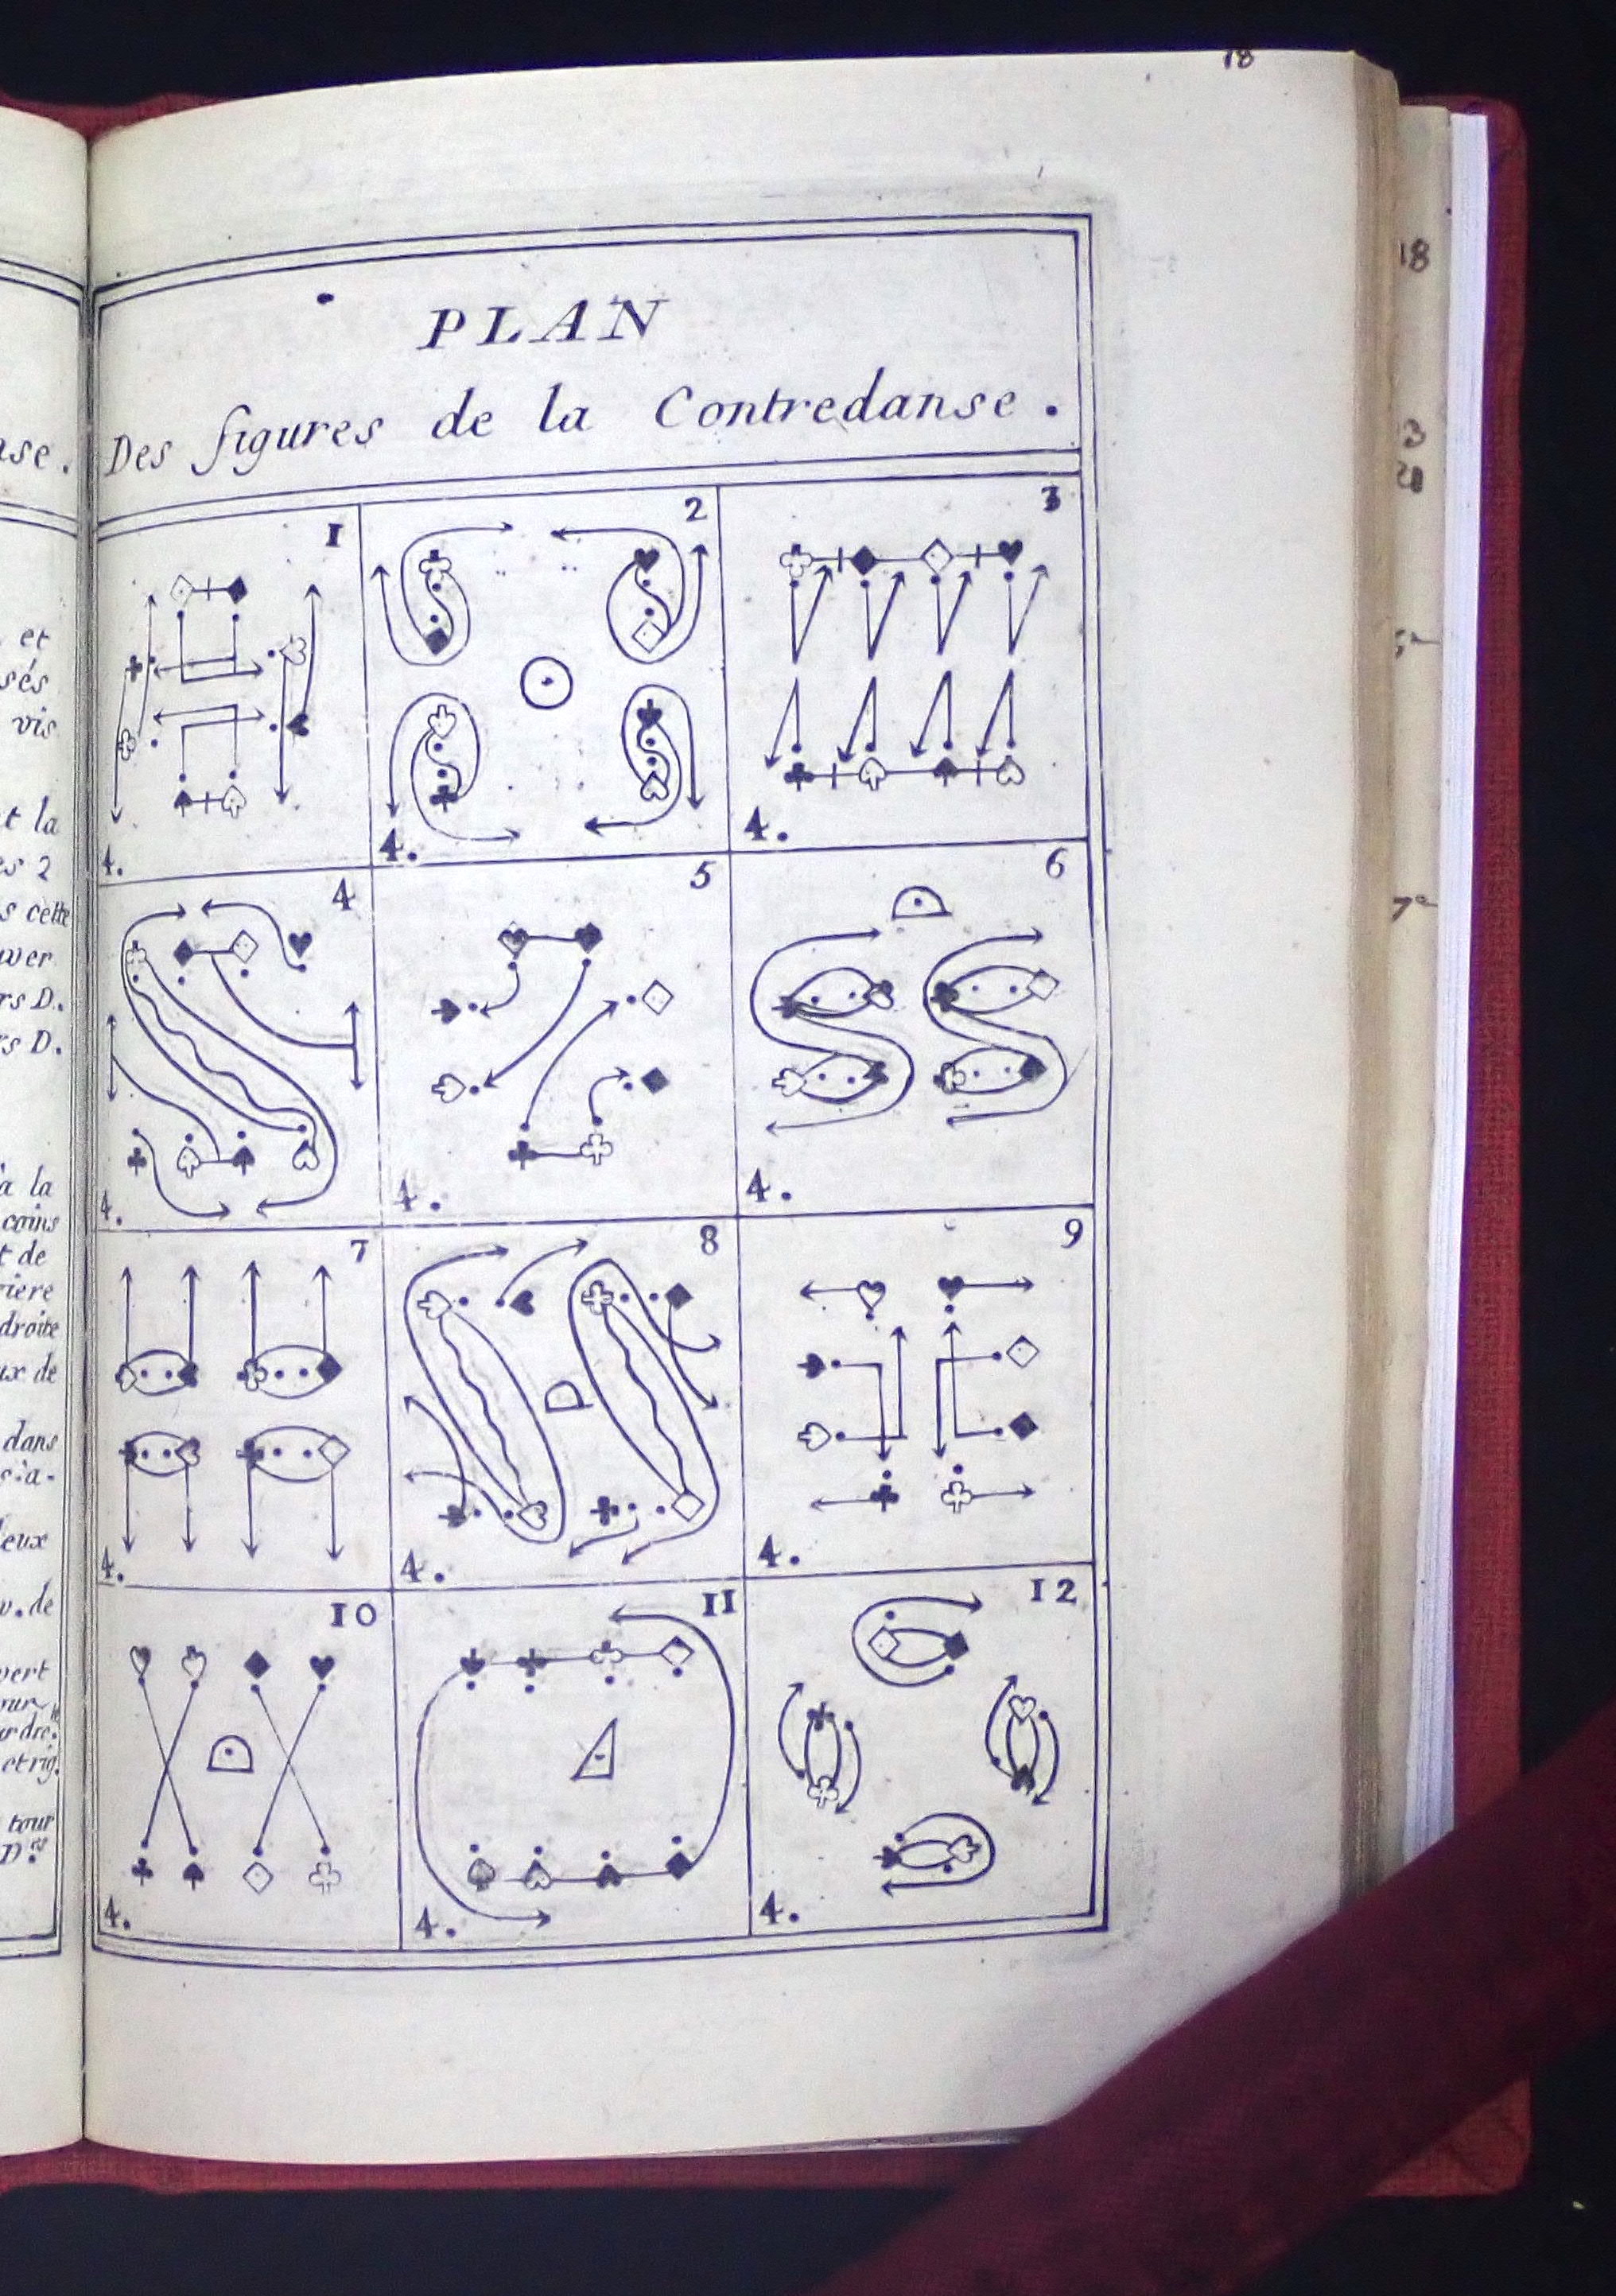 18
PLAN
Des figures de la Contredanse.
1
2
3
4.
4.
4.
4
5
6
4.
4.
4.
7
8
9
4.
4.
4.
10
11
12
4.
4.
4.
et
vis
t la
es 2
s cette
rs D.
rs D.
à la
coins
t de
riere
droite
ux de
dans
eux
v. de
tour
18